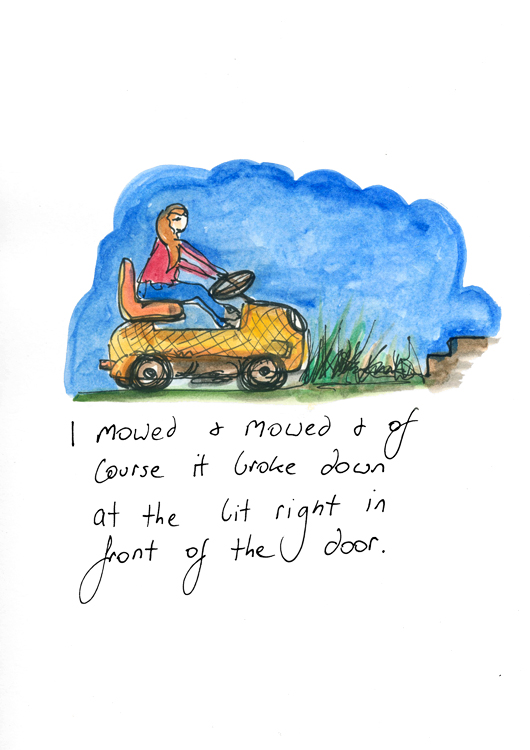 I mowed & mowed & of
course it broke down
at the bit right in
front of the door.